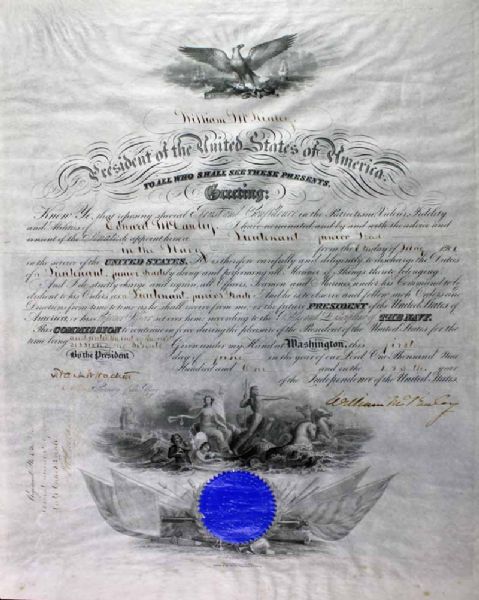 William McKinley
President of the United States of America.
TO ALL WHO SHALL SEE THESE PRESENTS,
Greeting:
Know Ye, that reposing special Trust and Confidence in the Patriotism, Valour, Fidelity
and Abilities of Edward McCauley I have nominated and by and with the advice and
consent of the Senate do appoint him a Lieutenant, junior grade
in the Navy from the day of June 1901
in the service of the UNITED STATES. He is therefore carefully and diligently to discharge the Duties
of a Lieutenant, junior grade by doing and performing all Manner of Things thereto belonging
And I do strictly charge and require all Officers, Seamen and Marines under his Command to be
obedient to his Orders as a Lieutenant, junior grade And he is to observe and follow such Orders and
Directions from time to time as he shall receive from me or the future PRESIDENT of the United States of
America, or his Superior Officer set over him, according to the THE NAVY.
This COMMISSION to continue in force during the pleasure of the President of the United States, for the
time being
Given under my Hand at Washington, this first
By the President
day of June in the year of our Lord One Thousand Nine
Hundred and One and in the year
of the Independence of the United States.
William McKinley